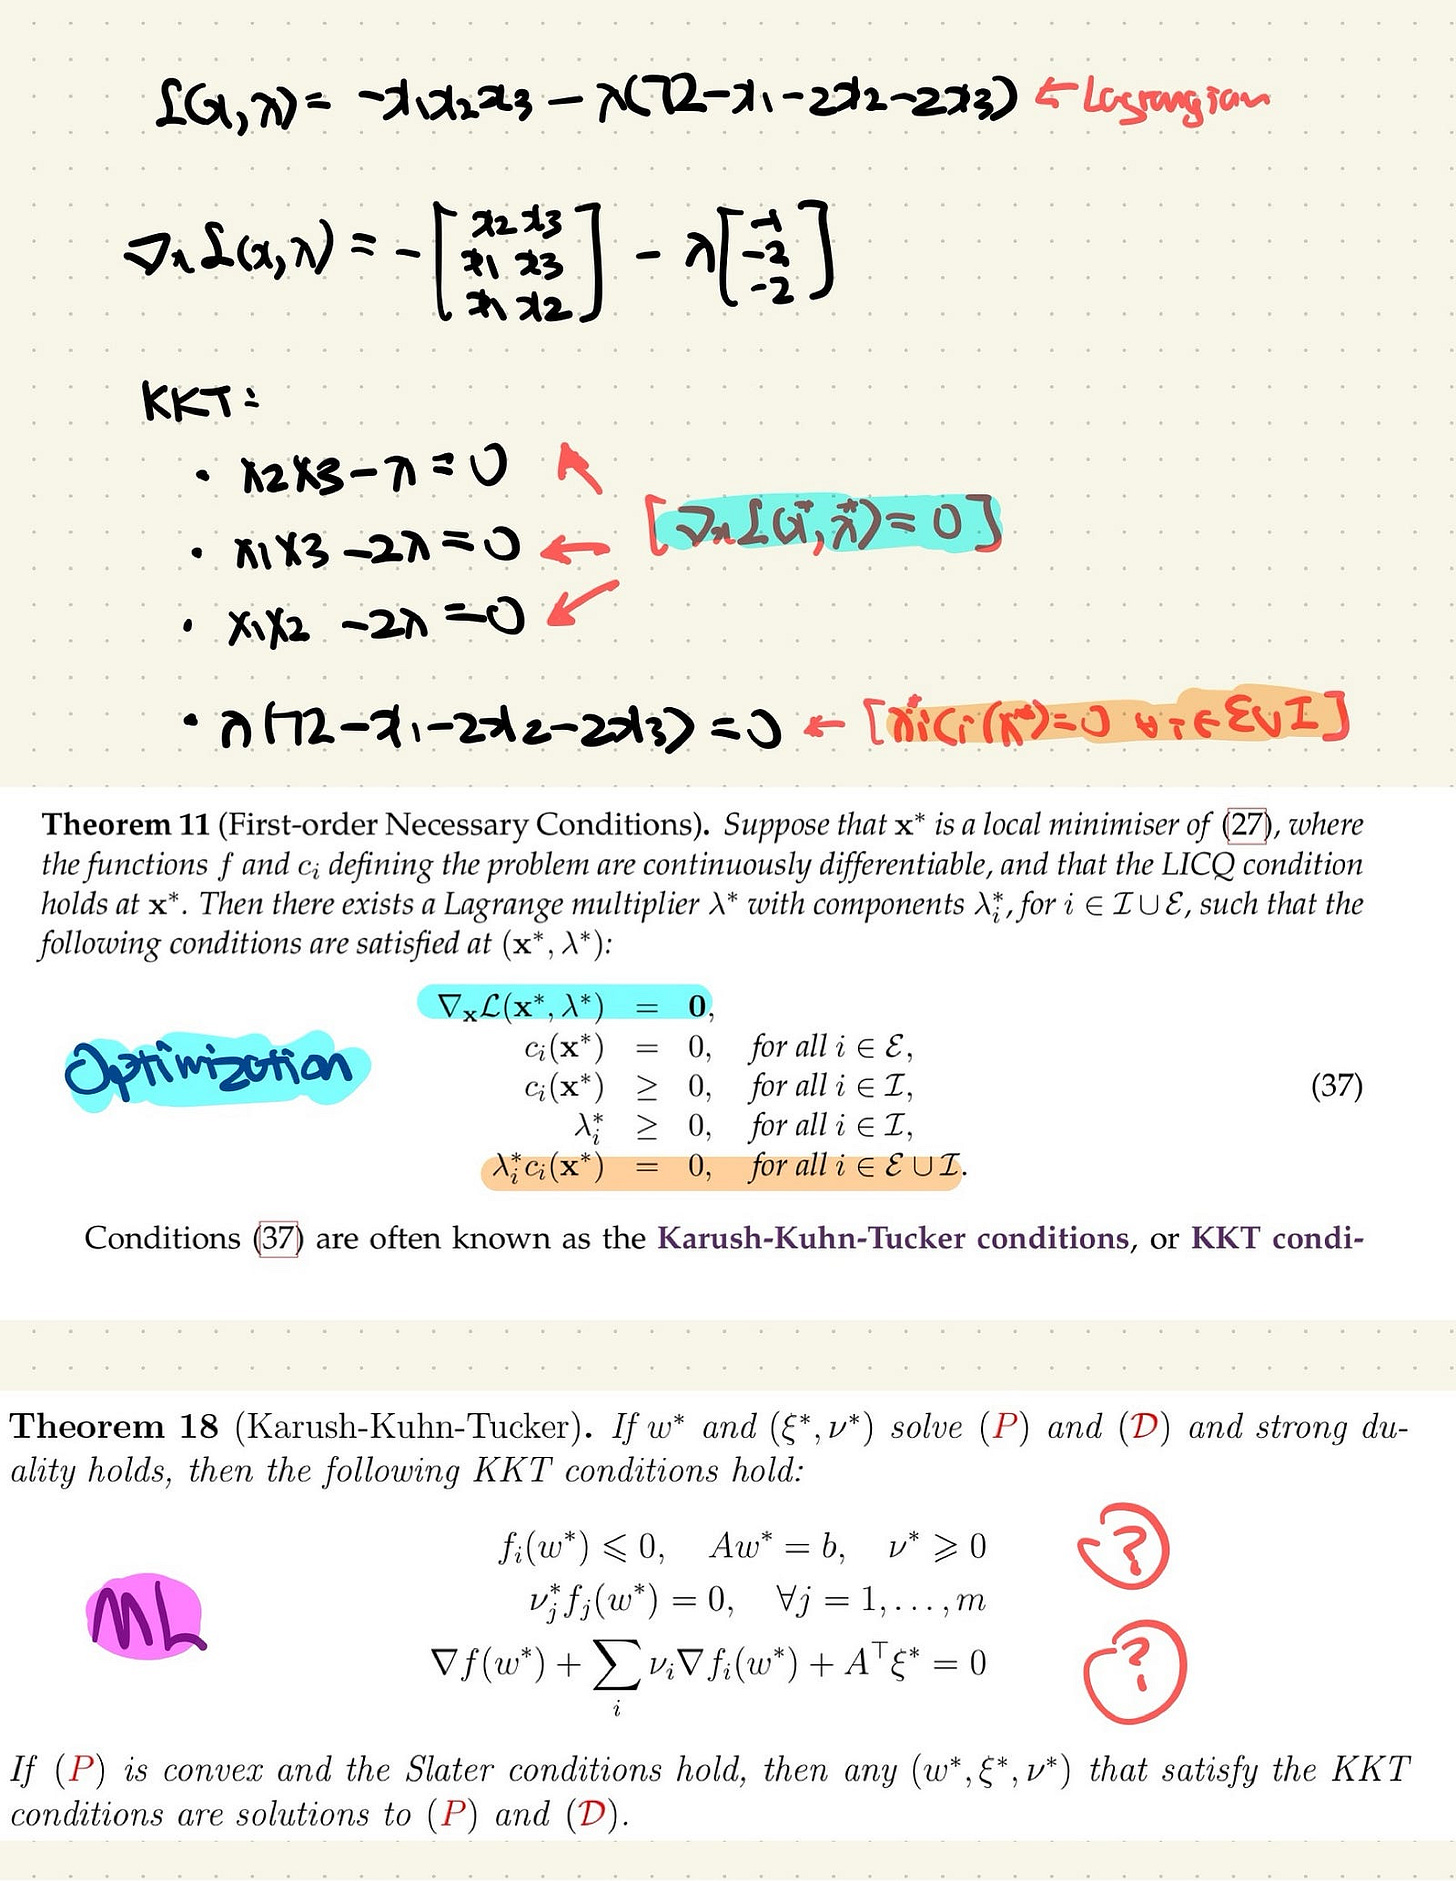 L(x,λ) = -x₁x₂x₃ - λ(72-x₁-2x₂-2x₃) ← Lagrangian
∇ₓL(x,λ) = -[x₂x₃ x₁x₃ x₁x₂] - λ[-1 -2 -2]
KKT:
• x₂x₃ - λ = 0
• x₁x₃ - 2λ = 0 ← [∇ₓL(x*,λ*) = 0]
• x₁x₂ - 2λ = 0
• λ(72-x₁-2x₂-2x₃) = 0 ← [λᵢ*cᵢ(x*)=0 ∀ i ∈ Ɛ∪I]
Theorem 11 (First-order Necessary Conditions). Suppose that x* is a local minimiser of (27), where
the functions f and cᵢ defining the problem are continuously differentiable, and that the LICQ condition
holds at x*. Then there exists a Lagrange multiplier λ* with components λᵢ*, for i ∈ I ∪ Ɛ, such that the
following conditions are satisfied at (x*, λ*):
∇ₓL(x*, λ*) = 0,
cᵢ(x*) = 0, for all i ∈ Ɛ,
Optimization
cᵢ(x*) ≥ 0, for all i ∈ I, (37)
λᵢ* ≥ 0, for all i ∈ I,
λᵢ*cᵢ(x*) = 0, for all i ∈ Ɛ ∪ I.
Conditions (37) are often known as the Karush-Kuhn-Tucker conditions, or KKT condi-
Theorem 18 (Karush-Kuhn-Tucker). If w* and (ξ*, ν*) solve (P) and (D) and strong du-
ality holds, then the following KKT conditions hold:
fᵢ(w*) ⩽ 0, Aw* = b, ν* ⩾ 0 ?
νⱼ*fⱼ(w*) = 0, ∀j = 1, . . . , m
ML
∇f(w*) + ∑ᵢ νᵢ∇fᵢ(w*) + A⊤ξ* = 0 ?
If (P) is convex and the Slater conditions hold, then any (w*, ξ*, ν*) that satisfy the KKT
conditions are solutions to (P) and (D).